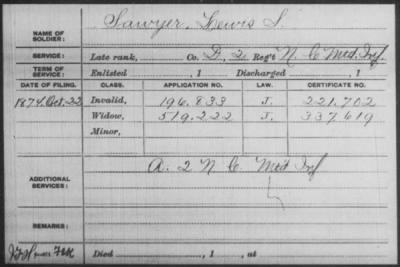 NAME OF SOLDIER: Sawyer, Lewis S.
SERVICE: Late rank, Co. D, 2 Reg't N. C. Mtd. Inf.
TERM OF SERVICE: Enlisted , 1 Discharged , 1
DATE OF FILING. CLASS. APPLICATION NO. LAW. CERTIFICATE NO.
1874, Oct. 22 Invalid, 196.833 J. 221.702
Widow, 519.222 J. 337.619
Minor,
ADDITIONAL SERVICES: A. 2 N. C. Mtd Inf
REMARKS:
Died , 1 , at